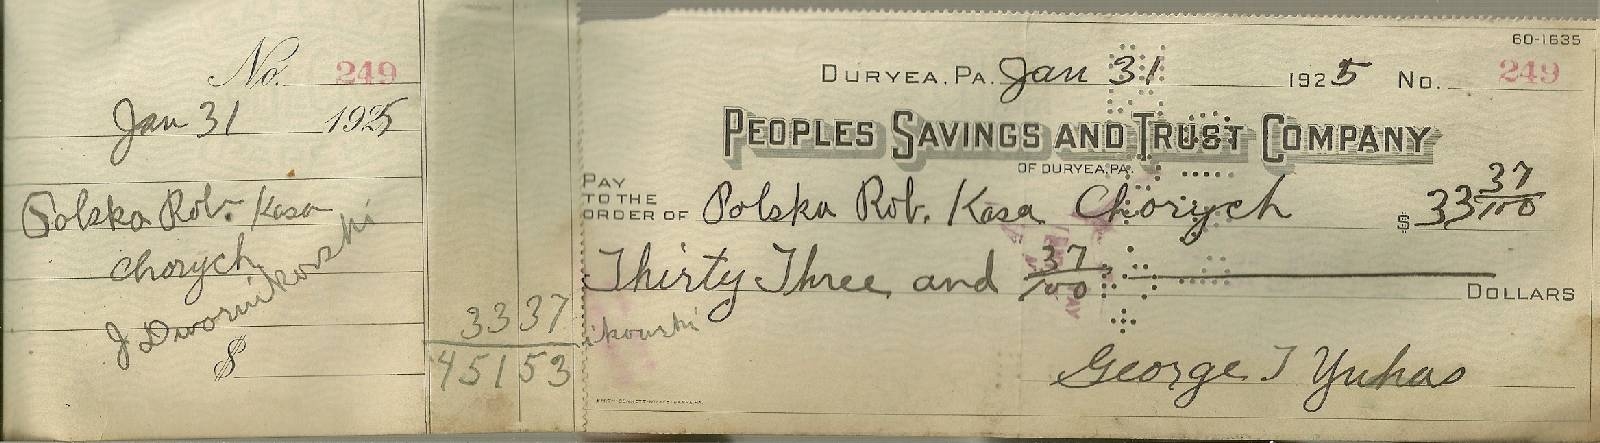 No. 249
Jan 31 1925
Polska Rob. Kasa
Chorych
J Dwornikowski
$
33 37
451 53
60-1635
DURYEA, PA. Jan 31 1925 No. 249
PEOPLES SAVINGS AND TRUST COMPANY
OF DURYEA, PA.
PAY
TO THE
ORDER OF Polska Rob. Kasa Chorych $ 33 37/100
Thirty Three and 37/100
DOLLARS
ikowski
George J Yuhas